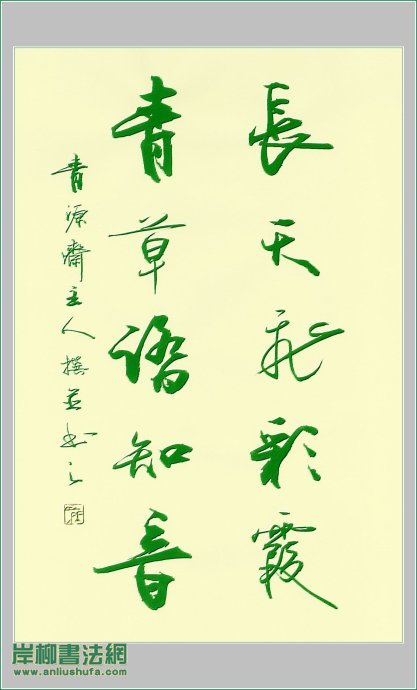 長天飛彩霞
青草譜知音
青源齋主人撰並书之
岸柳書法網
www.anliushufa.com